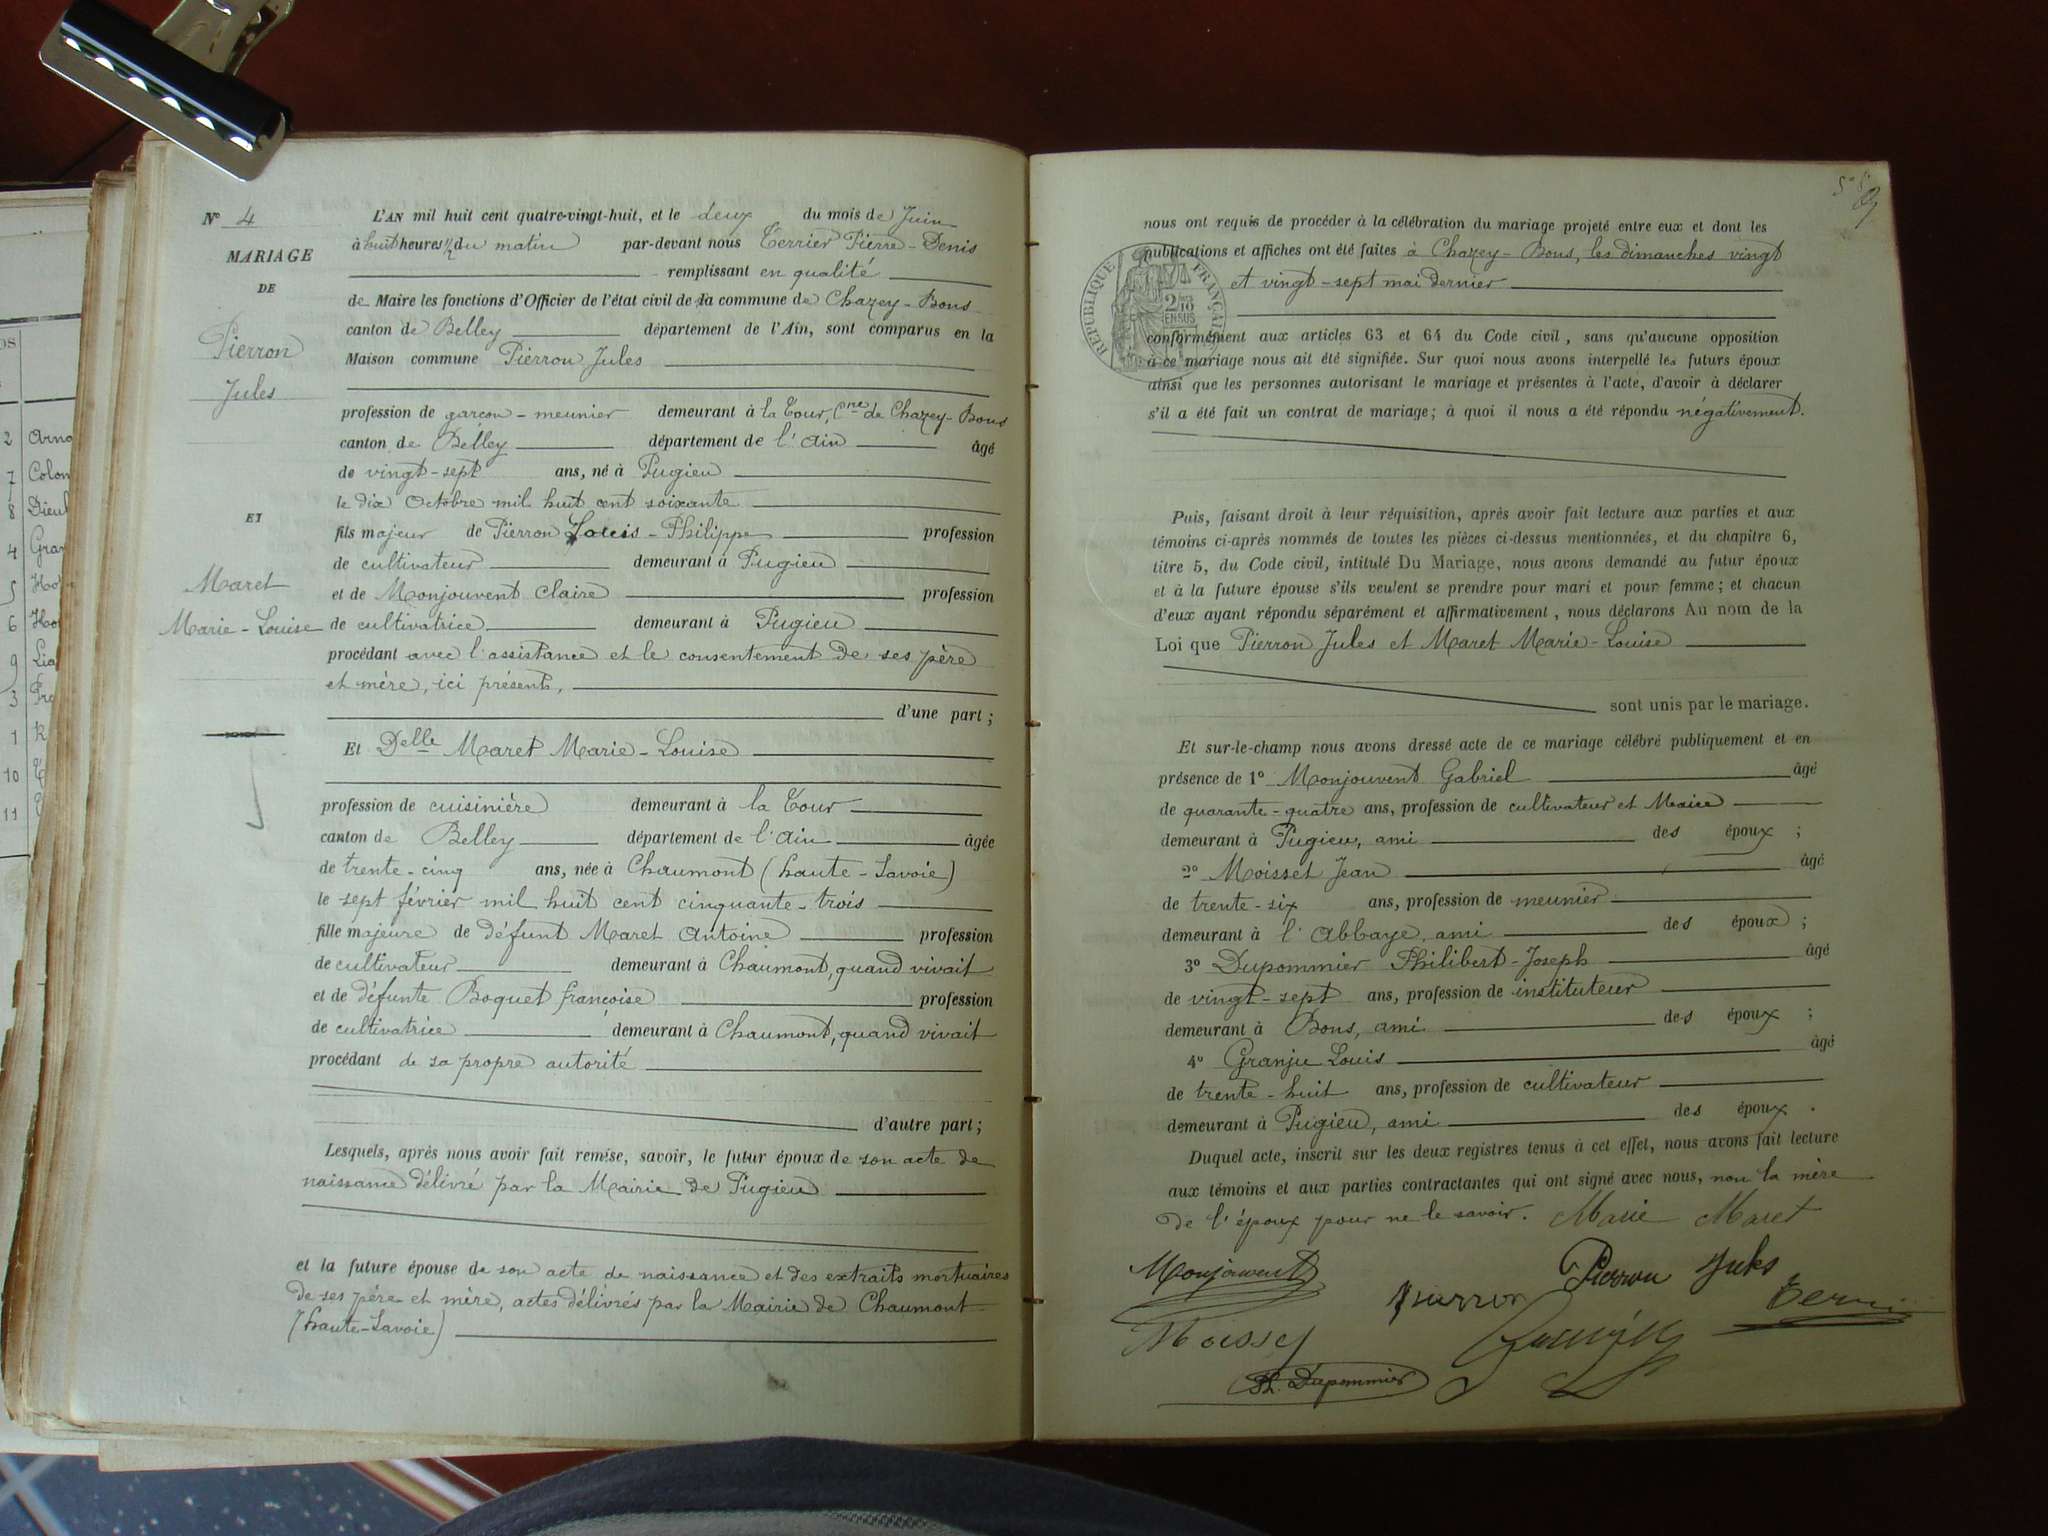 Nº 4
MARIAGE
DE
Pierron
Jules
ET
Maret
Marie-Louise
L'AN mil huit cent quatre-vingt-huit, et le deux du mois de Juin
à huit heures 1/2 du matin par-devant nous Terrier Pierre-Denis
remplissant en qualité
de Maire les fonctions d'Officier de l'état civil de la commune de Chazey-Bons
canton de Belley département de l'Ain, sont comparus en la
Maison commune Pierron Jules
profession de garçon-meunier demeurant à la Tour, Cne de Chazey-Bons
canton de Belley département de l'Ain âgé
de vingt-sept ans, né à Pugieu
le dix Octobre mil huit cent soixante
fils majeur de Pierron Louis-Philippe profession
de cultivateur demeurant à Pugieu
et de Monjouvent Claire profession
de cultivatrice demeurant à Pugieu
procédant avec l'assistance et le consentement de ses père
et mère, ici présents,
d'une part;
Et Delle Maret Marie-Louise
profession de cuisinière demeurant à la Tour
canton de Belley département de l'Ain âgée
de trente-cinq ans, née à Chaumont (haute-Savoie)
le sept février mil huit cent cinquante-trois
fille majeure de défunt Maret Antoine profession
de cultivateur demeurant à Chaumont, quand vivait
et de défunte Boquet françoise profession
de cultivatrice demeurant à Chaumont, quand vivait
procédant de sa propre autorité
d'autre part;
Lesquels, après nous avoir fait remise, savoir, le futur époux de son acte de
naissance délivré par la Mairie de Pugieu
et la future épouse de son acte de naissance et des extraits mortuaires
de ses père et mère, actes délivrés par la Mairie de Chaumont
(haute-Savoie)
2
7
8
4
5
6
9
3
1
10
11
nous ont requis de procéder à la célébration du mariage projeté entre eux et dont les
publications et affiches ont été faites à Chazey-Bons, les dimanches vingt
et vingt-sept mai dernier
RÉPUBLIQUE FRANÇAISE
conformément aux articles 63 et 64 du Code civil, sans qu'aucune opposition
à ce mariage nous ait été signifiée. Sur quoi nous avons interpellé les futurs époux
ainsi que les personnes autorisant le mariage et présentes à l'acte, d'avoir à déclarer
s'il a été fait un contrat de mariage; à quoi il nous a été répondu négativement.
Puis, faisant droit à leur réquisition, après avoir fait lecture aux parties et aux
témoins ci-après nommés de toutes les pièces ci-dessus mentionnées, et du chapitre 6,
titre 5, du Code civil, intitulé Du Mariage, nous avons demandé au futur époux
et à la future épouse s'ils veulent se prendre pour mari et pour femme; et chacun
d'eux ayant répondu séparément et affirmativement, nous déclarons Au nom de la
Loi que Pierron Jules et Maret Marie-Louise
sont unis par le mariage.
Et sur-le-champ nous avons dressé acte de ce mariage célébré publiquement et en
présence de 1º Monjouvent Gabriel âgé
de quarante-quatre ans, profession de cultivateur et Maire
demeurant à Pugieu, ami des époux;
2º Moisset Jean âgé
de trente-six ans, profession de meunier
demeurant à l'Abbaye, ami des époux;
3º Dupommier Philibert-Joseph âgé
de vingt-sept ans, profession de instituteur
demeurant à Bons, ami des époux;
4º Granju Louis âgé
de trente-huit ans, profession de cultivateur
demeurant à Pugieu, ami des époux.
Duquel acte, inscrit sur les deux registres tenus à cet effet, nous avons fait lecture
aux témoins et aux parties contractantes qui ont signé avec nous, non la mère
de l'époux pour ne le savoir. Marie Maret
Monjouvent Pierron Jules
Pierron
Ph. Dupommier